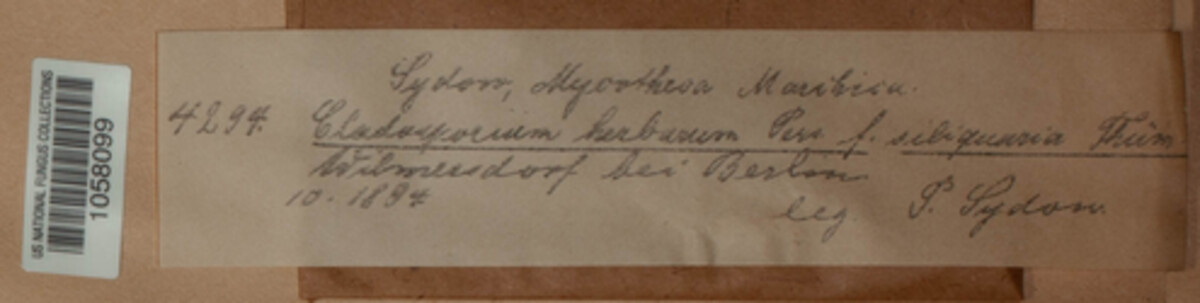 US NATIONAL FUNGUS COLLECTIONS
1058099
Sydow, Mycotheca Marchica.
4294. Cladosporium herbarum Pers. f. siliquaria Thüm
Wilmersdorf bei Berlin
10. 1894
leg. P. Sydow.